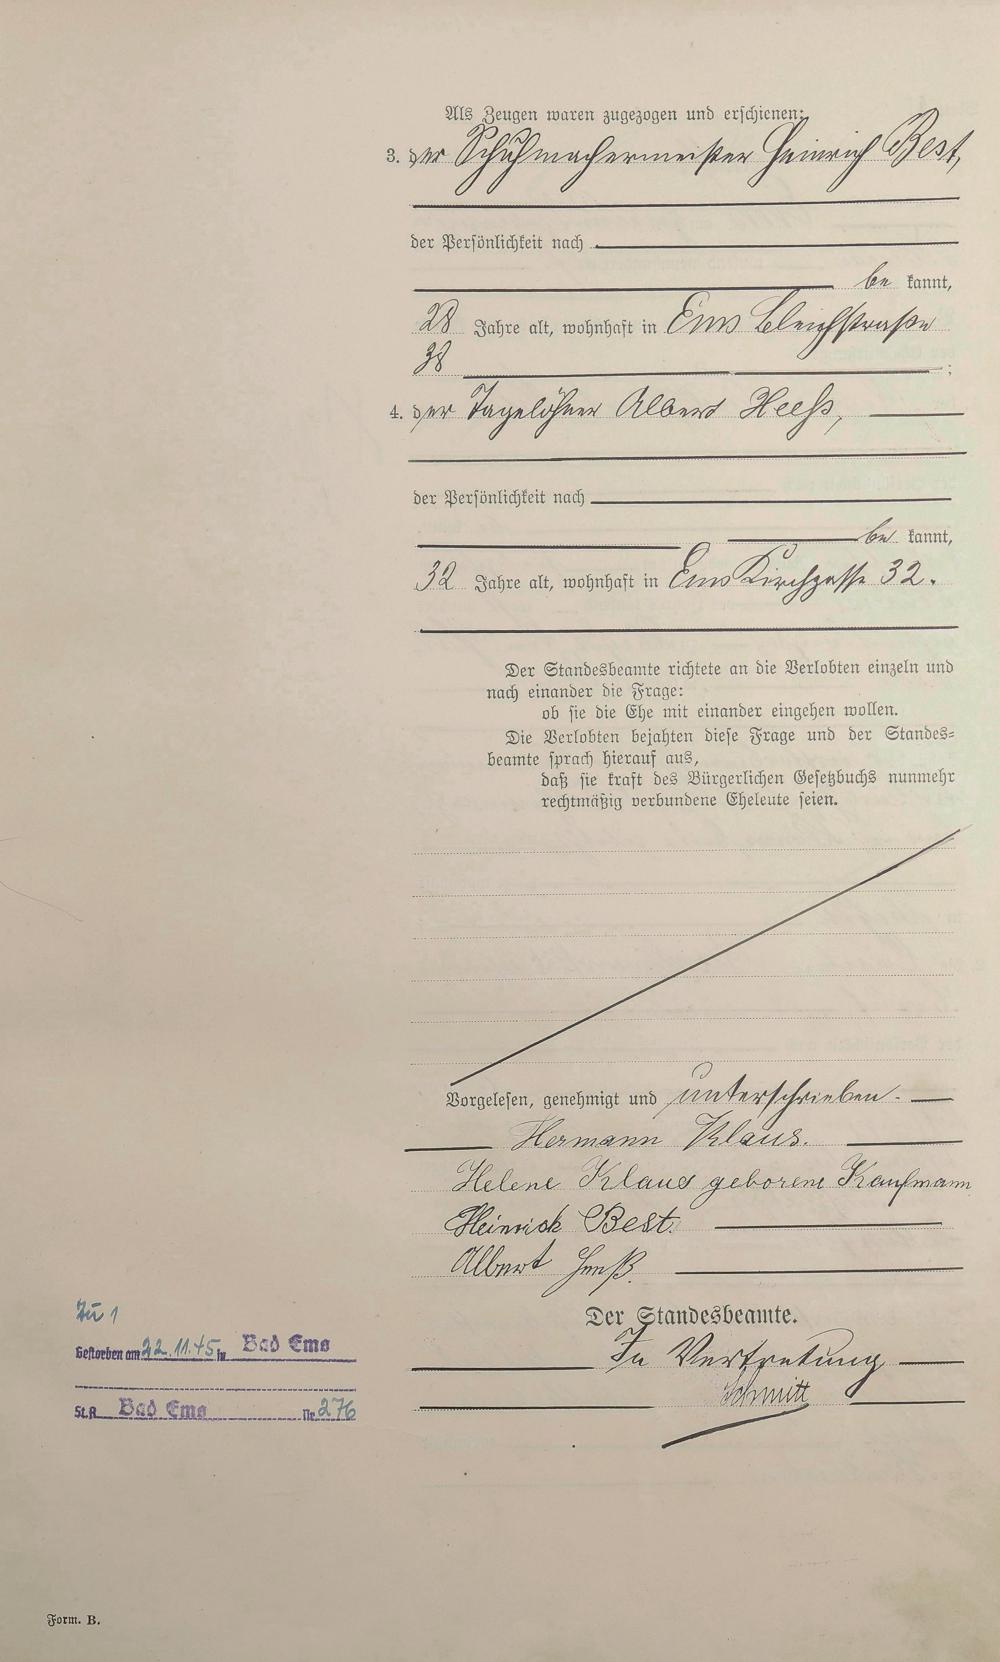 Als Zeugen waren zugezogen und erschienen:
3. der Schuhmachermeister Heinrich Best,
der Persönlichkeit nach
be kannt,
28 Jahre alt, wohnhaft in Ems Bleichstraße
38 ;
4. der Tagelöhner Albert Heeß,
der Persönlichkeit nach
be kannt,
32 Jahre alt, wohnhaft in Ems Kirchgasse 32.
Der Standesbeamte richtete an die Verlobten einzeln und
nach einander die Frage:
ob sie die Ehe mit einander eingehen wollen.
Die Verlobten bejahten diese Frage und der Standes-
beamte sprach hierauf aus,
daß sie kraft des Bürgerlichen Gesetzbuchs nunmehr
rechtmäßig verbundene Eheleute seien.
Vorgelesen, genehmigt und unterschrieben.
Hermann Klaus.
Helene Klaus geborene Kaufmann
Heinrich Best.
Albert Heeß.
Der Standesbeamte.
In Vertretung
Schmitt
Zu 1
Gestorben am 22.11.45 in Bad Ems
St.A. Bad Ems Nr. 276
Form. B.